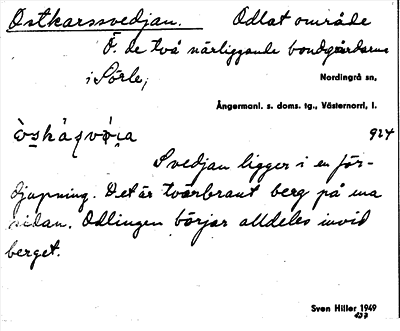 Ostkarssvedjan. Odlat område
Ö. de två närliggande bondgårdarna
i Sörle,
Nordingrå sn,
Ångermanl. s. doms. tg., Västernorrl. l.
924
Svedjan ligger i en för-
djupning. Det är tvärbrant berg på ena
sidan. Odlingen börjar alldeles invid
berget.
Sven Hiller 1949